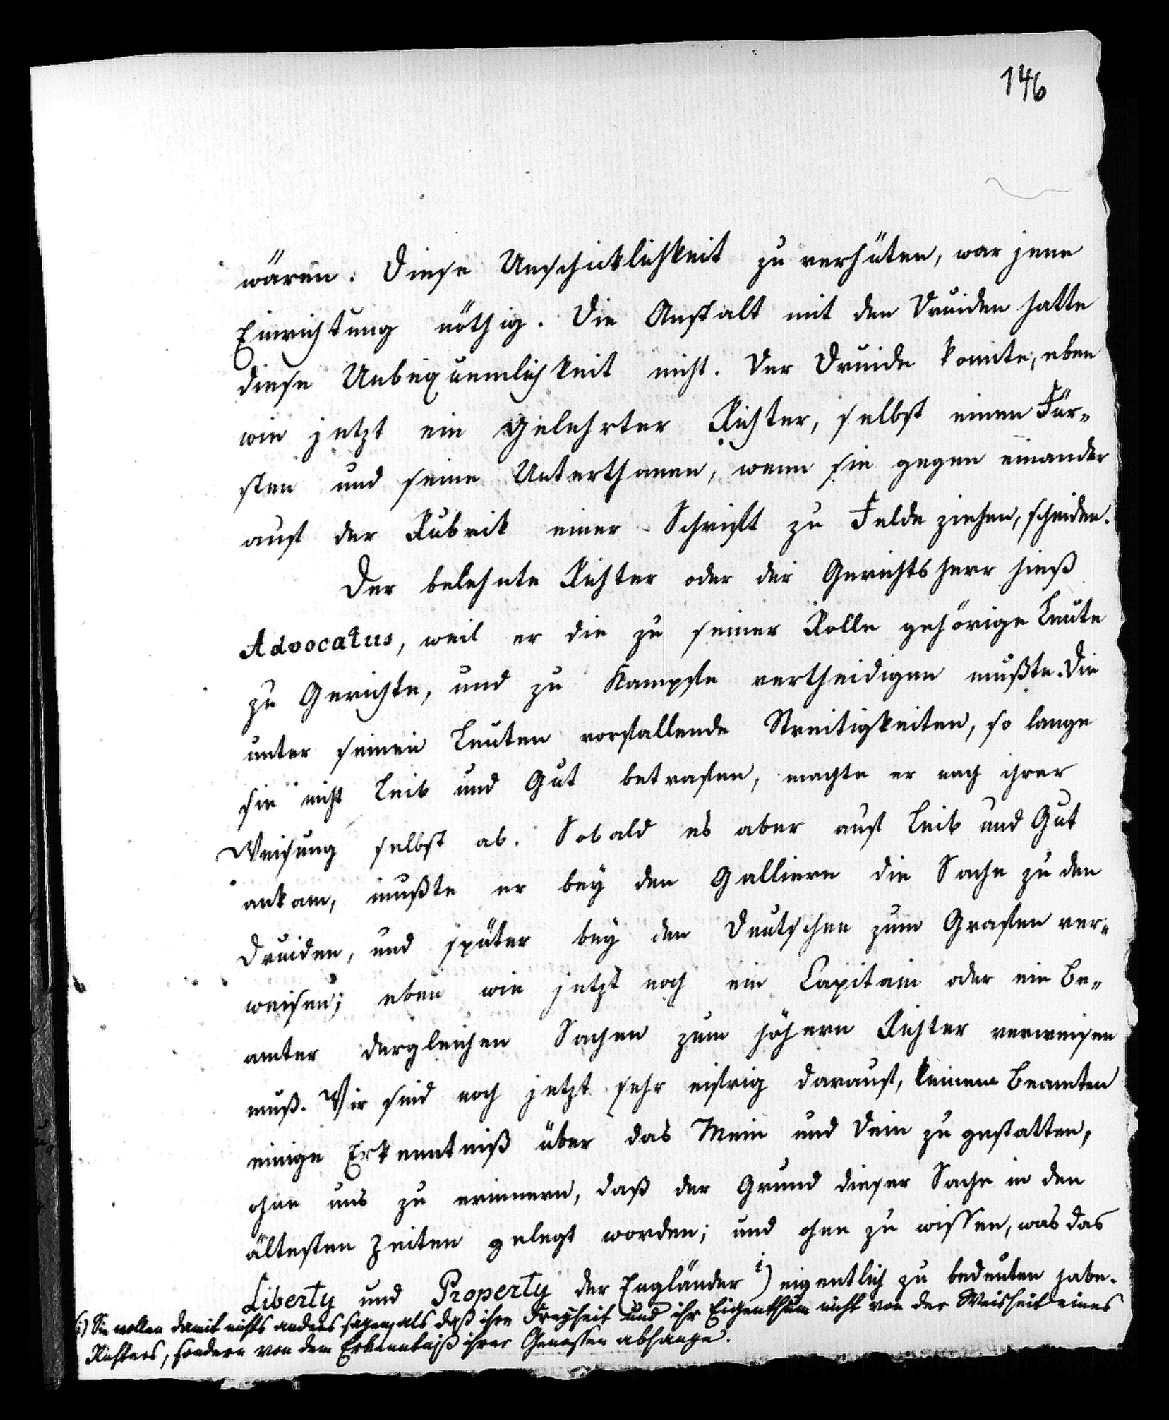 146
wären. Diese Unschicklichkeit zu verhüten, war jene
Einrichtung nöthig. Die Anstalt mit den Druiden hatte
diese Unbequemlichkeit nicht. Der Druide konnte, eben
wie jetzt ein gelehrter Richter, selbst einen Für-
sten und seine Unterthanen, wenn sie gegen einander
auf der Rubrik einer Schrift zu Felde ziehen, scheiden.
Der belehnte Richter oder der Gerichtsherr hieß
Advocatus, weil er die zu seiner Rolle gehörige Leute
zu Gerichte, und zu Kampfe vertheidigen mußte. Die
unter seinen Leuten vorfallende Streitigkeiten, so lange
sie nicht Leib und Gut betrafen, machte er nach ihrer
Weisung selbst ab. Sobald es aber auf Leib und Gut
ankam, mußte er bey den Galliern die Sache zu den
Druiden, und später bey den Deutschen zum Grafen ver-
weisen; eben wie jetzt noch ein Capitain oder ein Be-
amter dergleichen Sachen zum höhern Richter verweisen
muß. Wir sind noch jetzt sehr eifrig darauf, keinem Beamten
einige Erkenntniß über das Mein und Dein zu gestatten,
ohne uns zu erinnern, daß der Grund dieser Sache in den
ältesten Zeiten gelegt worden; und ohne zu wissen, was das
Liberty und Property der Engländer i) eigentlich zu bedeuten habe.
i) Sie wollen damit nichts anders sagen, als daß ihre Freyheit und ihr Eigenthum nicht von der Weisheit eines
Richters, sondern von dem Erkenntniß ihrer Genossen abhange.